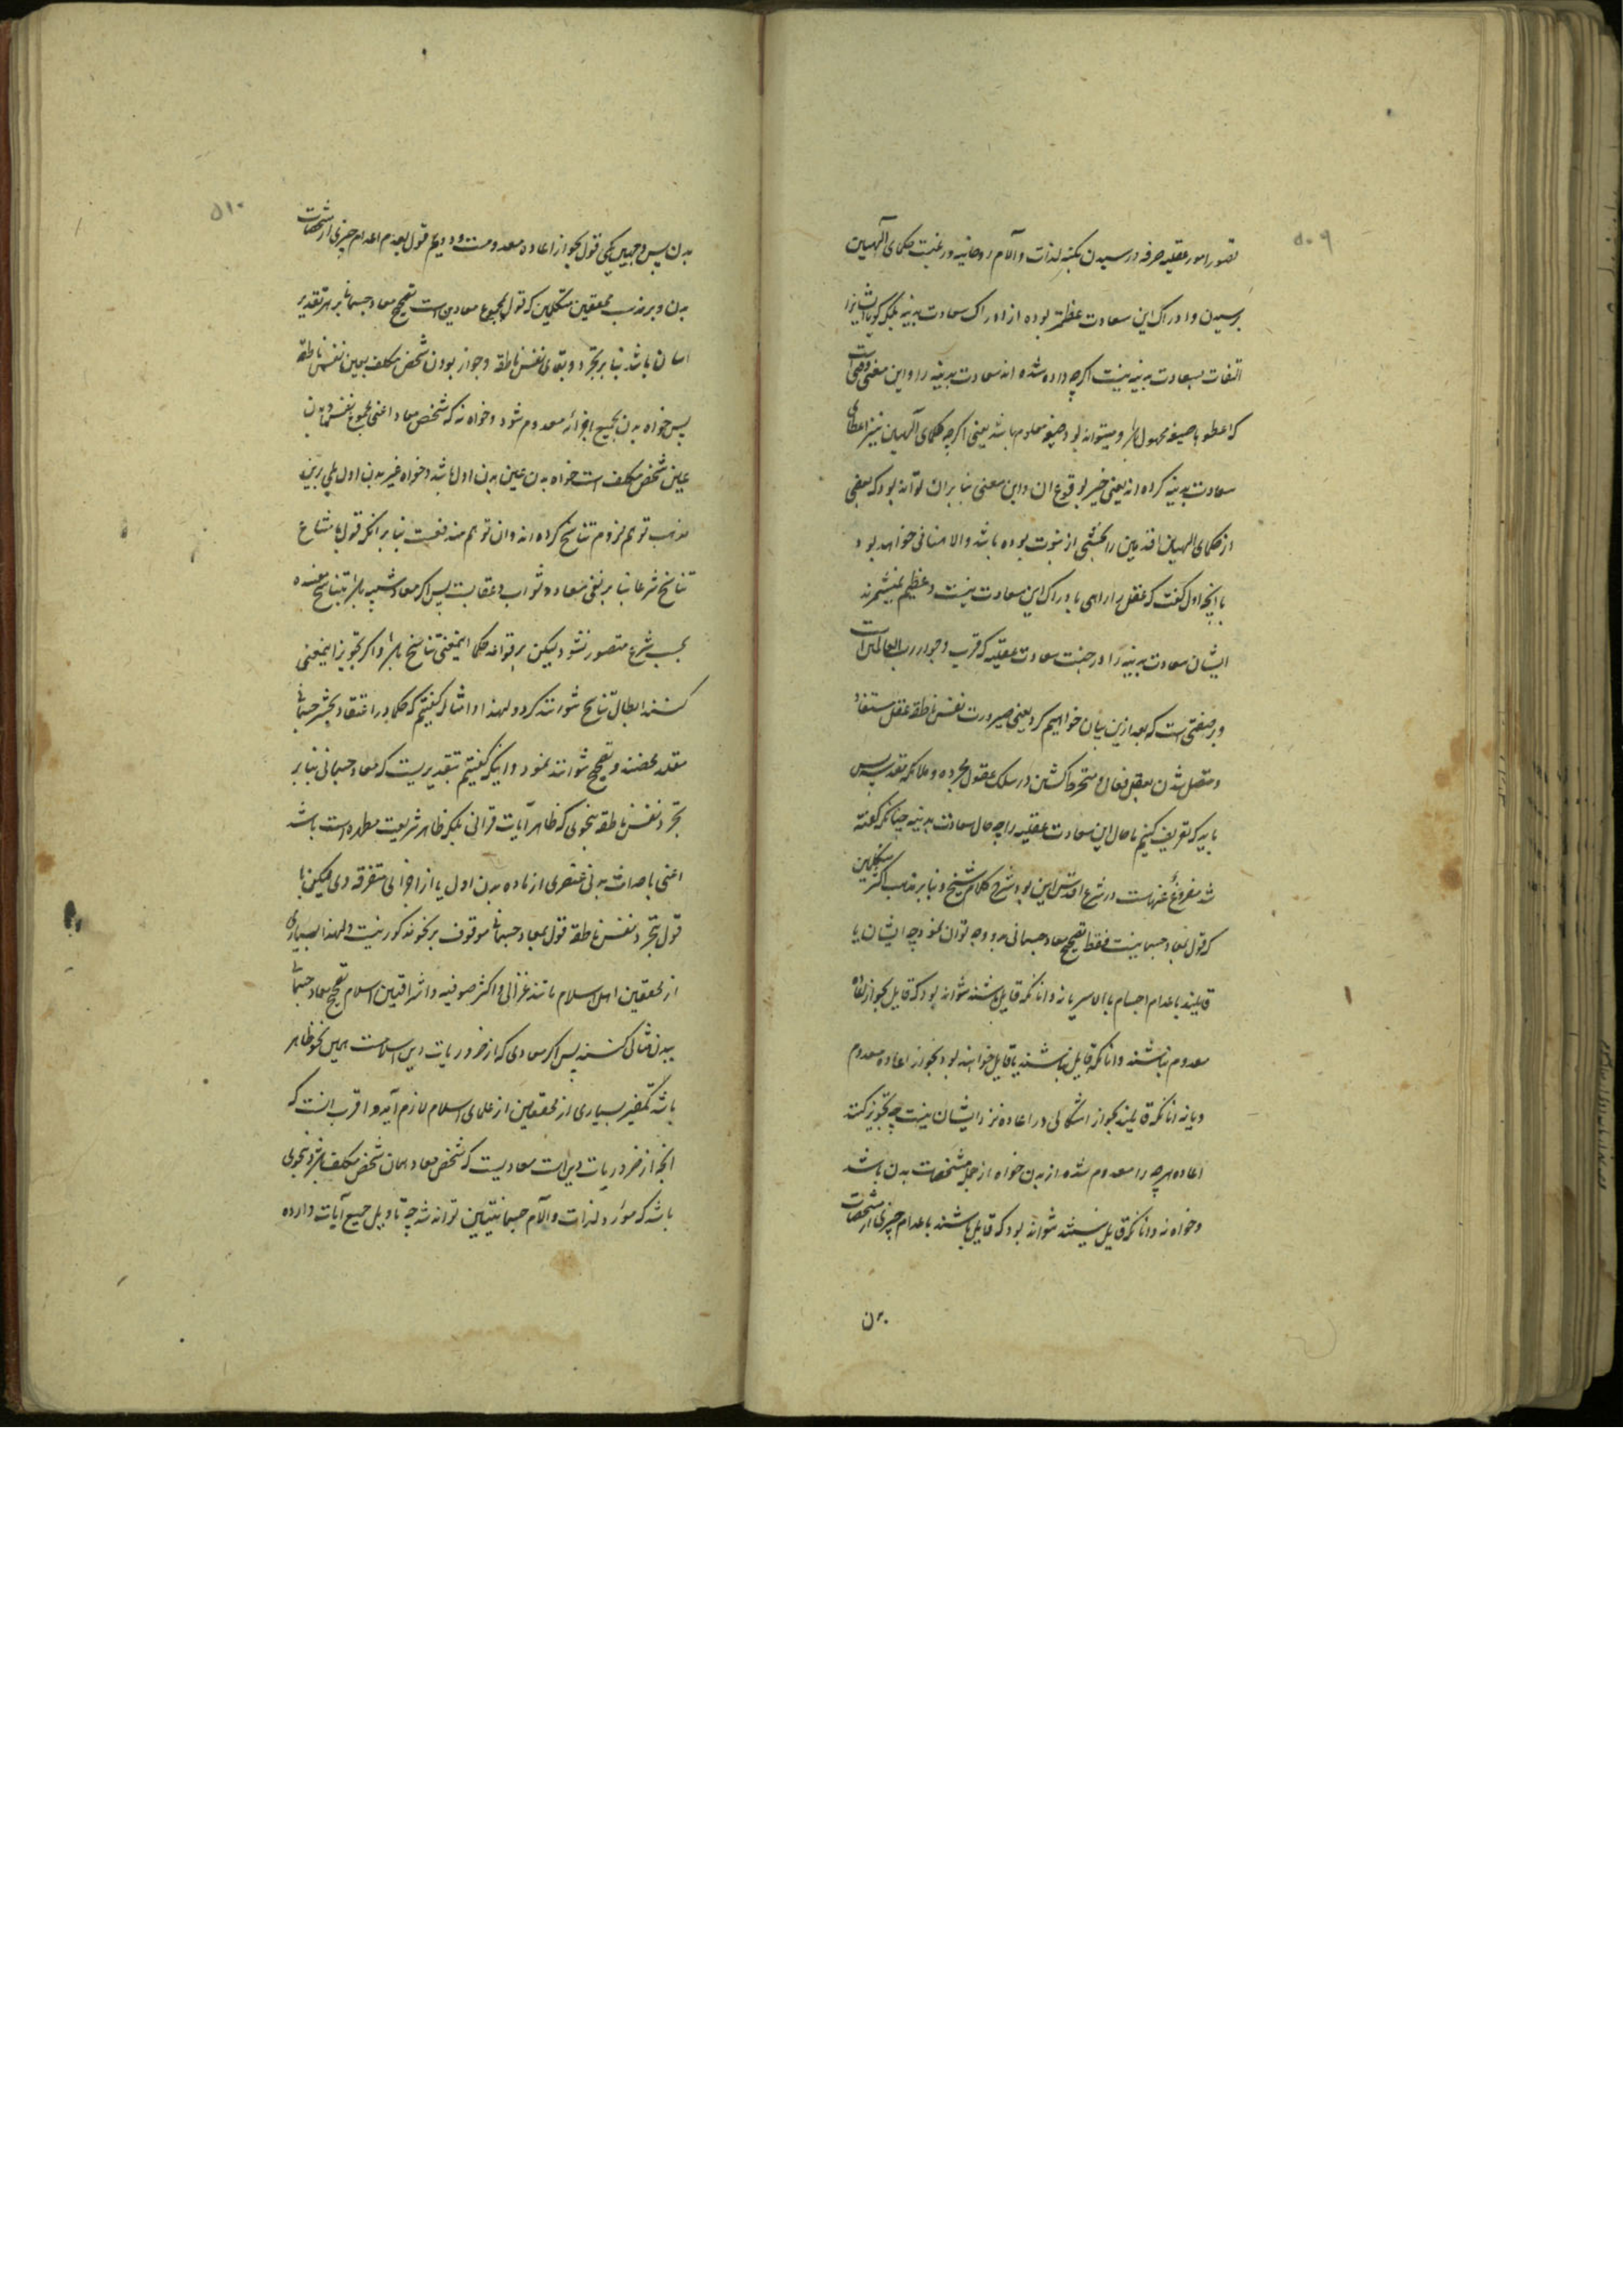 ۵۰۹
تصور امور عقلیه صرفه و رسیدن بکنه لذات و آلام روحانیه و رغبت حکمای آلهیین
برسیدن و ادراک این سعادت عظیمتر بوده از ادراک سعادت بدنیه بلکه کویا ایشانرا
التفات بسعادت بدنیه نیست اکرچه داده شده اند سعادت بدنیه را و این معنی وقتی است
که اعطوا بصیغه مجهول باشد و میتواند بود بصیغه معلوم باشد یعنی اکرچه حکمای آلهیین نیز اعطای
سعادت بدنیه کرده اند یعنی خبر بوقوع ان و این معنی بنا بران تواند بود که بعضی
از حکمای الهیین اقدمین را بخشی از نبوت بوده باشد و الا منافی خواهد بود
با انچه اول کفت که عقل را راهی بادراک این سعادت نیست و عظیم نمیشمرند
ایشان سعادت بدنیه را در جنب سعادت عقلیه که قرب و جوار رب العالمین است
و بر صفتی است که بعد ازین بیان خواهیم کرد یعنی صیرورت نفس ناطقه عقل مستفاد
و متصل شدن بعقل فعال و منخرط کشتن در سلک عقول مجرده و ملائکه مقدسه پس
باید که تعریف کنیم ما حال این سعادت عقلیه را چه حال سعادت بدنیه چنانکه کفته
شد مفروغ عنهاست در شرع اقدس این بود شرح کلام شیخ و بنا بر مذهب اکثر متکلمین
که قول بمعاد جسمانیست فقط تصحیح معاد جسمانی بدو وجه توان نمود چه ایشان یا
قایلند باعدام اجسام بالاسر یا نه و انانکه قایل باشند نتواند بود که قایل بجواز اعاده
معدوم نباشند و انانکه قایل نباشند یا قایل خواهند بود بجواز اعاده معدوم
و یا نه انانکه قایلند بجواز اشکالی در اعاده نزد ایشان نیست چه تجویز کنند
اعاده هر چه را معدوم شده از بدن خواه از جمله مشخصات بدن باشد
و خواه نه و انانکه قایل نیستند نتواند بود که قایل باشند باعدام چیزی از مشخصات
بدن
۵۱۰
بدن پس وجهین یکی قول بجواز اعاده معدومست و دویم قول بعدم اعدام چیزی از مشخصات
بدن و بر مذهب محققین متکلمین که قول بمجموع معادین است تصحیح معاد جسمانی بر هر تقدیر
اسان باشد بنا بر تجرد و بقای نفس ناطقه و جواز بودن شخص مکلف بعینه نفس ناطقه
پس خواه بدن بجمیع اجزائه معدوم شود و خواه نه که شخص معاد اعنی مجموع نفس و بدن
عین شخص مکلف است خواه بدن عین بدن اول باشد و خواه غیر بدن اول بلی برین
مذهب توهم لزوم تناسخ کرده اند و ان توهم مندفعست بنا بر انکه قول بامتناع
تناسخ شرعا بنا بر نفی معاد و ثواب و عقابست پس اکر معاد شبیه باشد بتناسخ مفسده
بحسب شرع متصور نشود لیکن بر قواعد حکما اینمعنی تناسخ باشد و اکر تجویز اینمعنی
کنند ابطال تناسخ نتوانند کرد و لهذا و امثاله کفتیم که حکما در اعتقاد بحشر جسمانی
مقلد محضند و تصحیح نتوانند نمود و اینکه کفتیم بتقدیریست که معاد جسمانی بنا بر
تجرد نفس ناطقه بنحوی که ظاهر آیات قرانی بلکه ظاهر شریعت مطهره است باشد
اعنی باحداث بدنی عنصری از ماده بدن اول یا از اجزای متفرقه وی لیکن با
قول بتجرد نفس ناطقه قول بمعاد جسمانی موقوف بر نحو مذکور نیست و لهذا بسیاری
از محققین اهل اسلام مانند غزالی و اکثر صوفیه و اشراقیین اسلام تصحیح معاد جسمانی
ببدن مثالی کنند پس اکر معادی که از ضروریات دین اسلامست همین نحو ظاهر
باشد تکفیر بسیاری از محققین از علمای اسلام لازم آید و اقرب انست که
انچه از ضروریات دین است معادیست که شخص معاد همان شخص مکلف باشد و بنحوی
باشد که مورد لذات و آلام جسمانیتین تواند شد چه تاویل جمیع آیات وارده